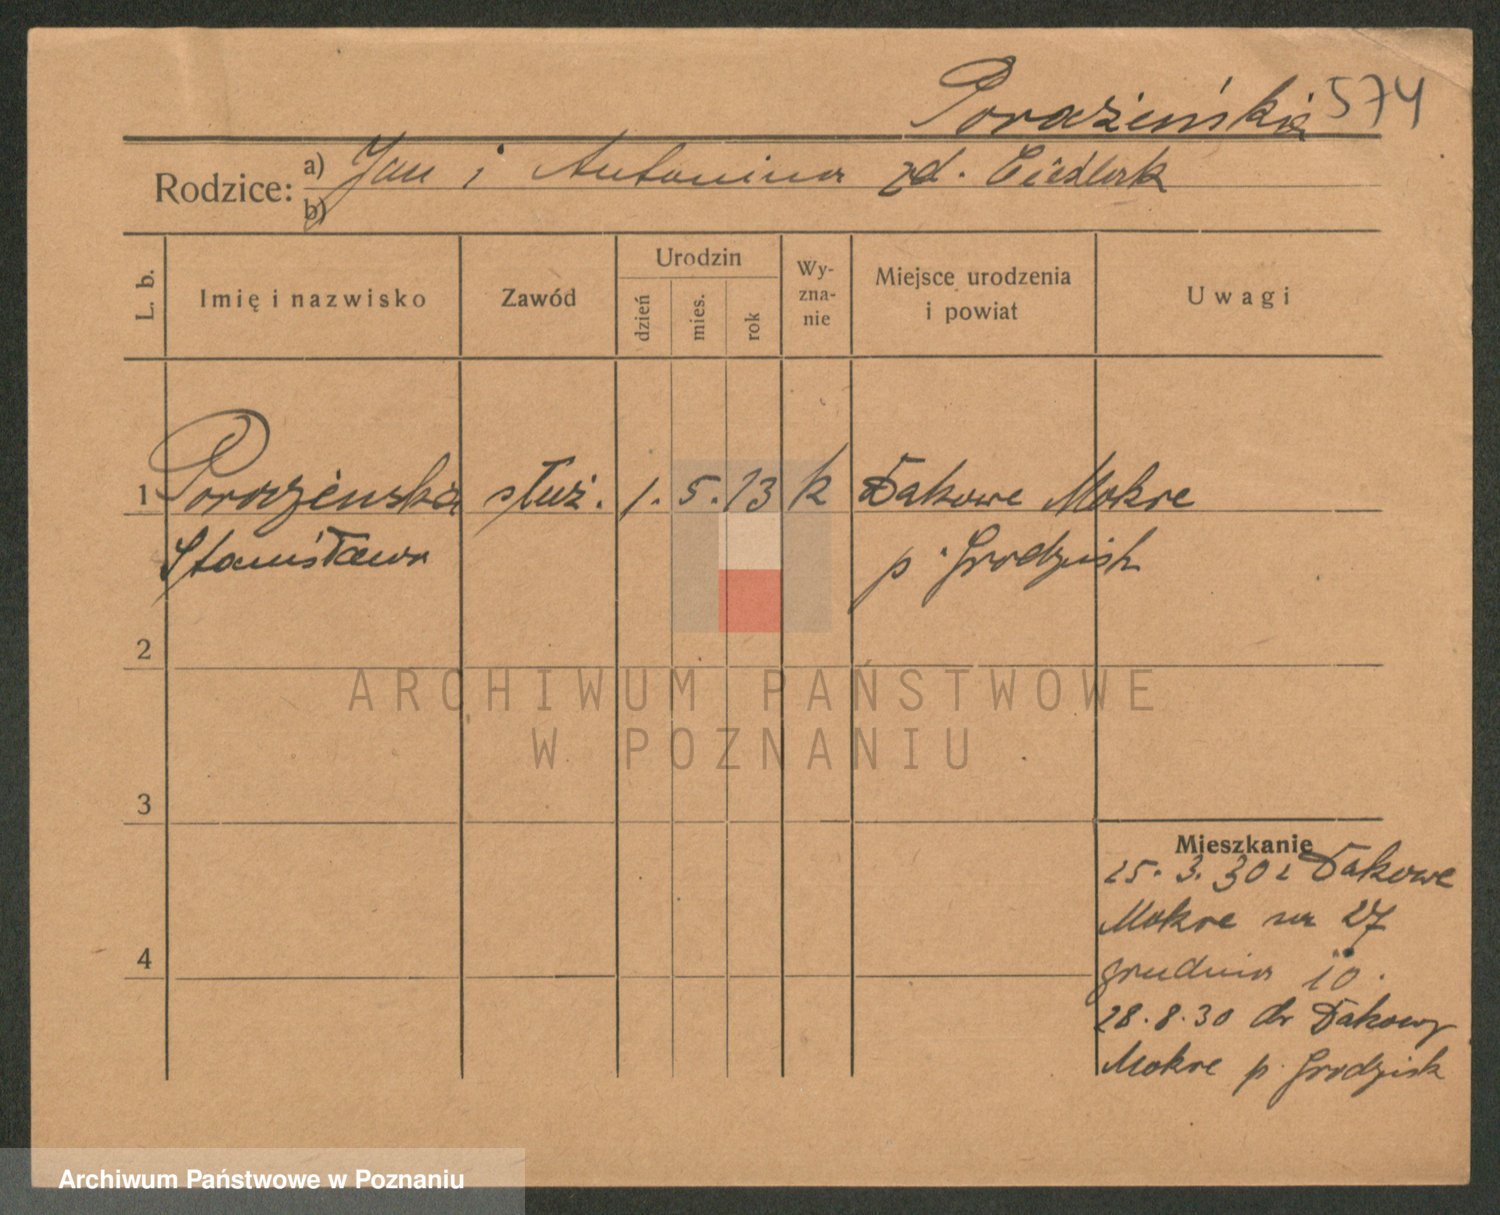 Porażińska 574
Rodzice: a) Jan i Antonina zd. Ciedlak
b)
L. b.
Imię i nazwisko
Zawód
Urodzin
dzień
mies.
rok
Wy-
zna-
nie
Miejsce urodzenia
i powiat
Uwagi
1 Porażeńska służ. 1. 5. 13 k Dakowe Mokre
Stanisława p. Grodzisk
2
ARCHIWUM PAŃSTWOWE
W POZNANIU
3
Mieszkanie
25. 3. 30 z Dakowe
Mokre na 27
grudnia 10.
4
28. 8. 30 do Dakowy
Mokre p. Grodzisk
Archiwum Państwowe w Poznaniu